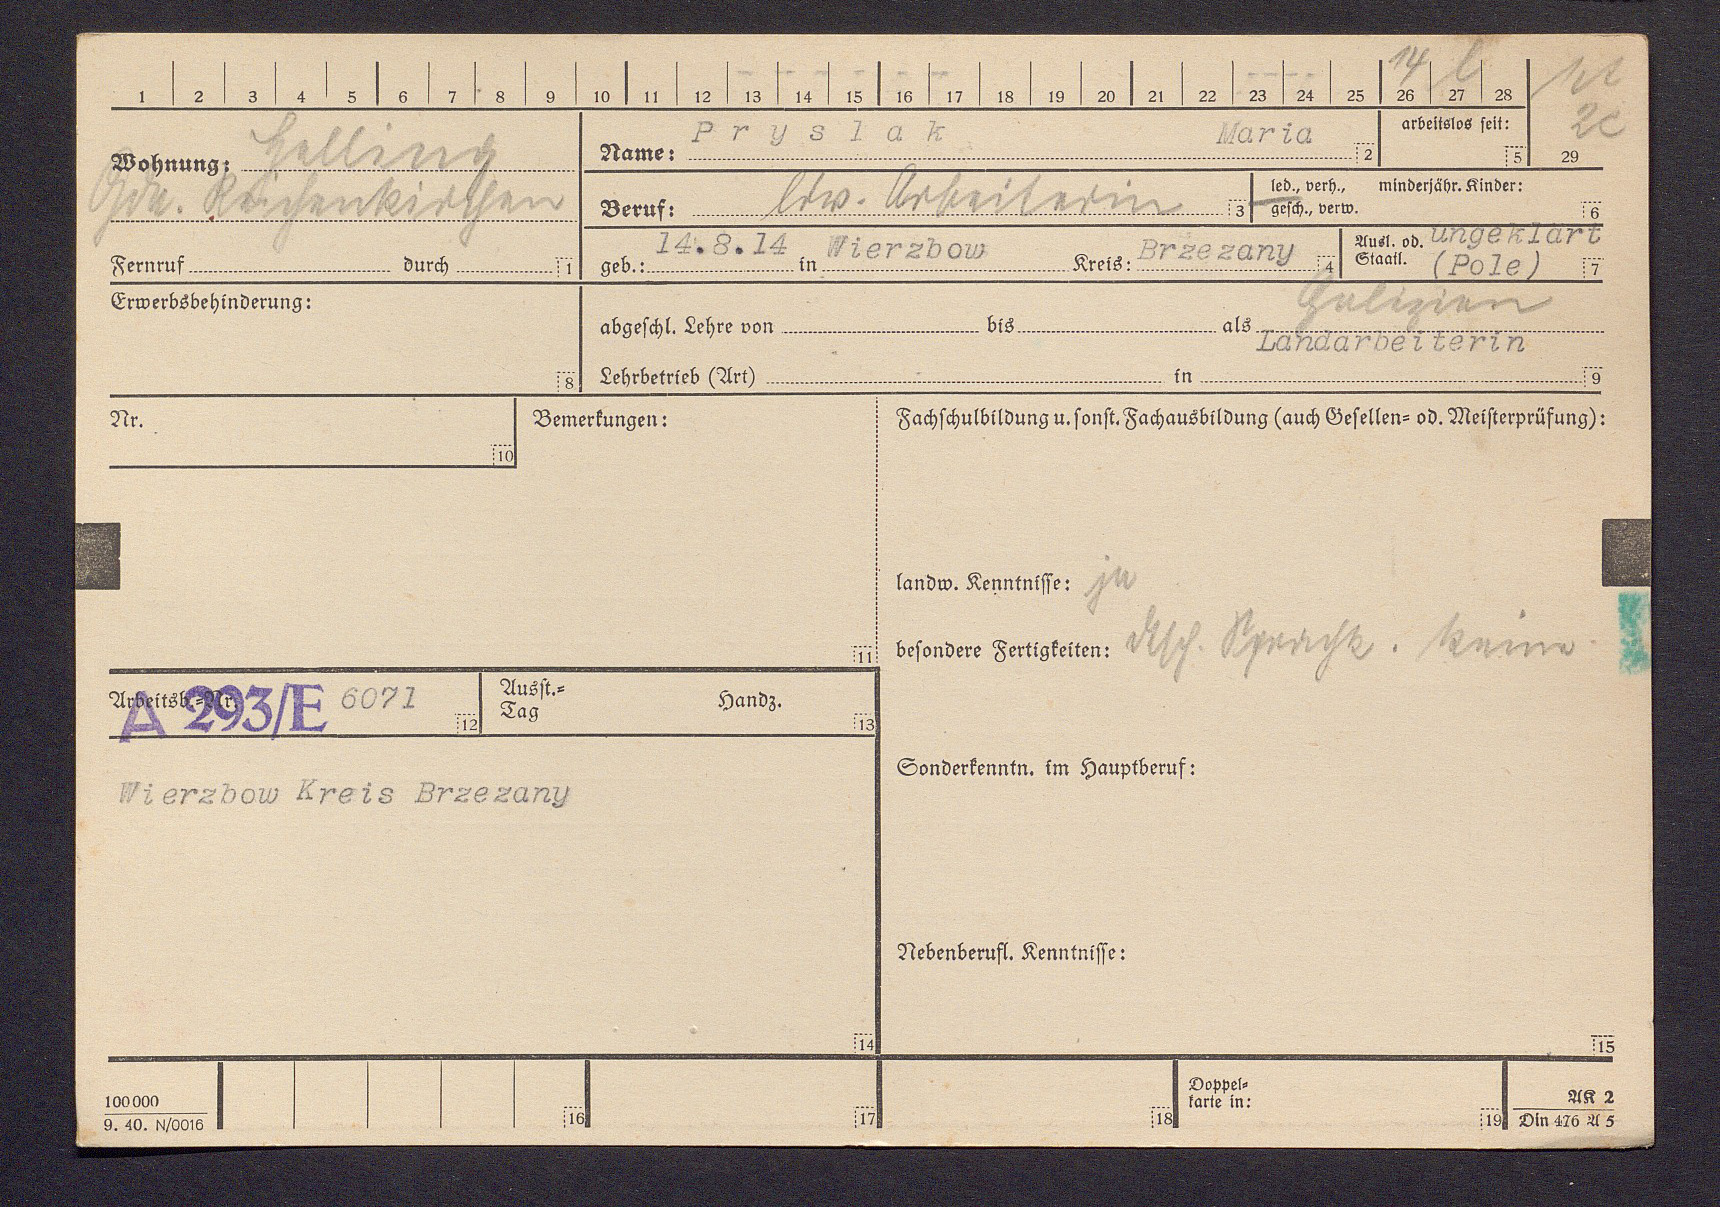 1 2 3 4 5 6 7 8 9 10 11 12 13 14 15 16 17 18 19 20 21 22 23 24 25 26 27 28
14
2c
29
Wohnung: Helling
Gde. Reichenkirchen
Fernruf durch 1
Name: Pryslak Maria 2
arbeitslos seit: 5
Beruf: ldw. Arbeiterin 3
led., verh., minderjähr. Kinder:
gesch., verw. 6
geb.: 14.8.14 in Wierzbow Kreis: Brzezany 4
Ausl. od. Staatl. ungeklärt
(Pole) 7
Galizien
Erwerbsbehinderung: 8
abgeschl. Lehre von bis als
Landarbeiterin
Lehrbetrieb (Art) in 9
Nr. 10
Bemerkungen: 11
Fachschulbildung u. sonst. Fachausbildung (auch Gesellen= od. Meisterprüfung):
landw. Kenntnisse: ja
besondere Fertigkeiten: dtsch. Sprachk. keine
Arbeitsb.=Nr. A 293/E 6071 12
Ausst.=
Tag Handz. 13
Wierzbow Kreis Brzezany
14
Sonderkenntn. im Hauptberuf:
Nebenberufl. Kenntnisse:
15
100 000
9. 40. N/0016
16 17 18
Doppel=
karte in: 19
AK 2
Din 476 A 5